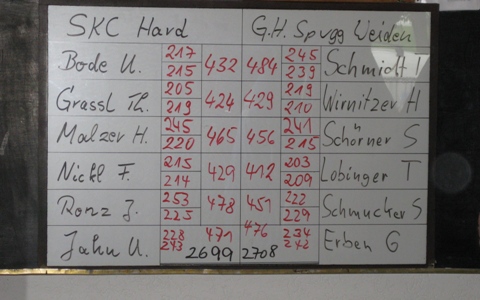 SKC Hard G.H. Spvgg Weiden
Bode U. 217 215 432 484 245 239 Schmidt I
Grassl Th. 205 219 424 429 219 210 Wirnitzer H
Malzer H. 245 220 465 456 241 215 Schörner S
Nickl F. 215 214 429 412 203 209 Lobinger T
Ronz J. 253 225 478 451 222 229 Schmucker S
Jahn U. 228 243 471 476 234 242 Erben G
2699 2708